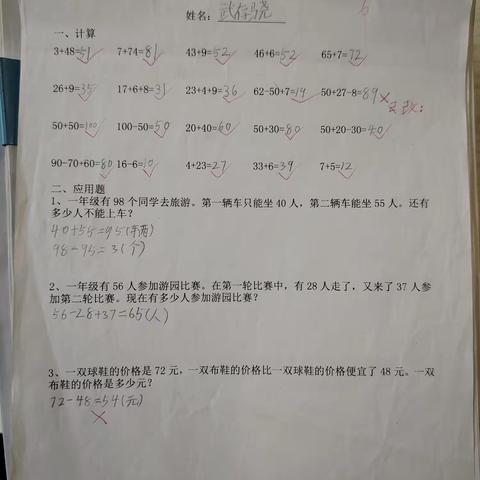 姓名：武存骁
一、计算
3+48=51 7+74=81 43+9=52 46+6=52 65+7=72
26+9=35 17+6+8=31 23+4+9=36 62-50+7=19 50+27-8=89
50+50=100 100-50=50 20+40=60 50+30=80 50+20-30=40
90-70+60=80 16-6=10 4+23=27 33+6=39 7+5=12
二、应用题
1、一年级有 98 个同学去旅游。第一辆车只能坐 40 人，第二辆车能坐 55 人。还有
多少人不能上车？
40+55=95(车两)
98-95=3(个)
2、一年级有 56 人参加游园比赛。在第一轮比赛中，有 28 人走了，又来了 37 人参
加第二轮比赛。现在有多少人参加游园比赛？
56-28+37=65(人)
3、一双球鞋的价格是 72 元，一双布鞋的价格比一双球鞋的价格便宜了 48 元。一双
布鞋的价格是多少元？
72-48=54(元)